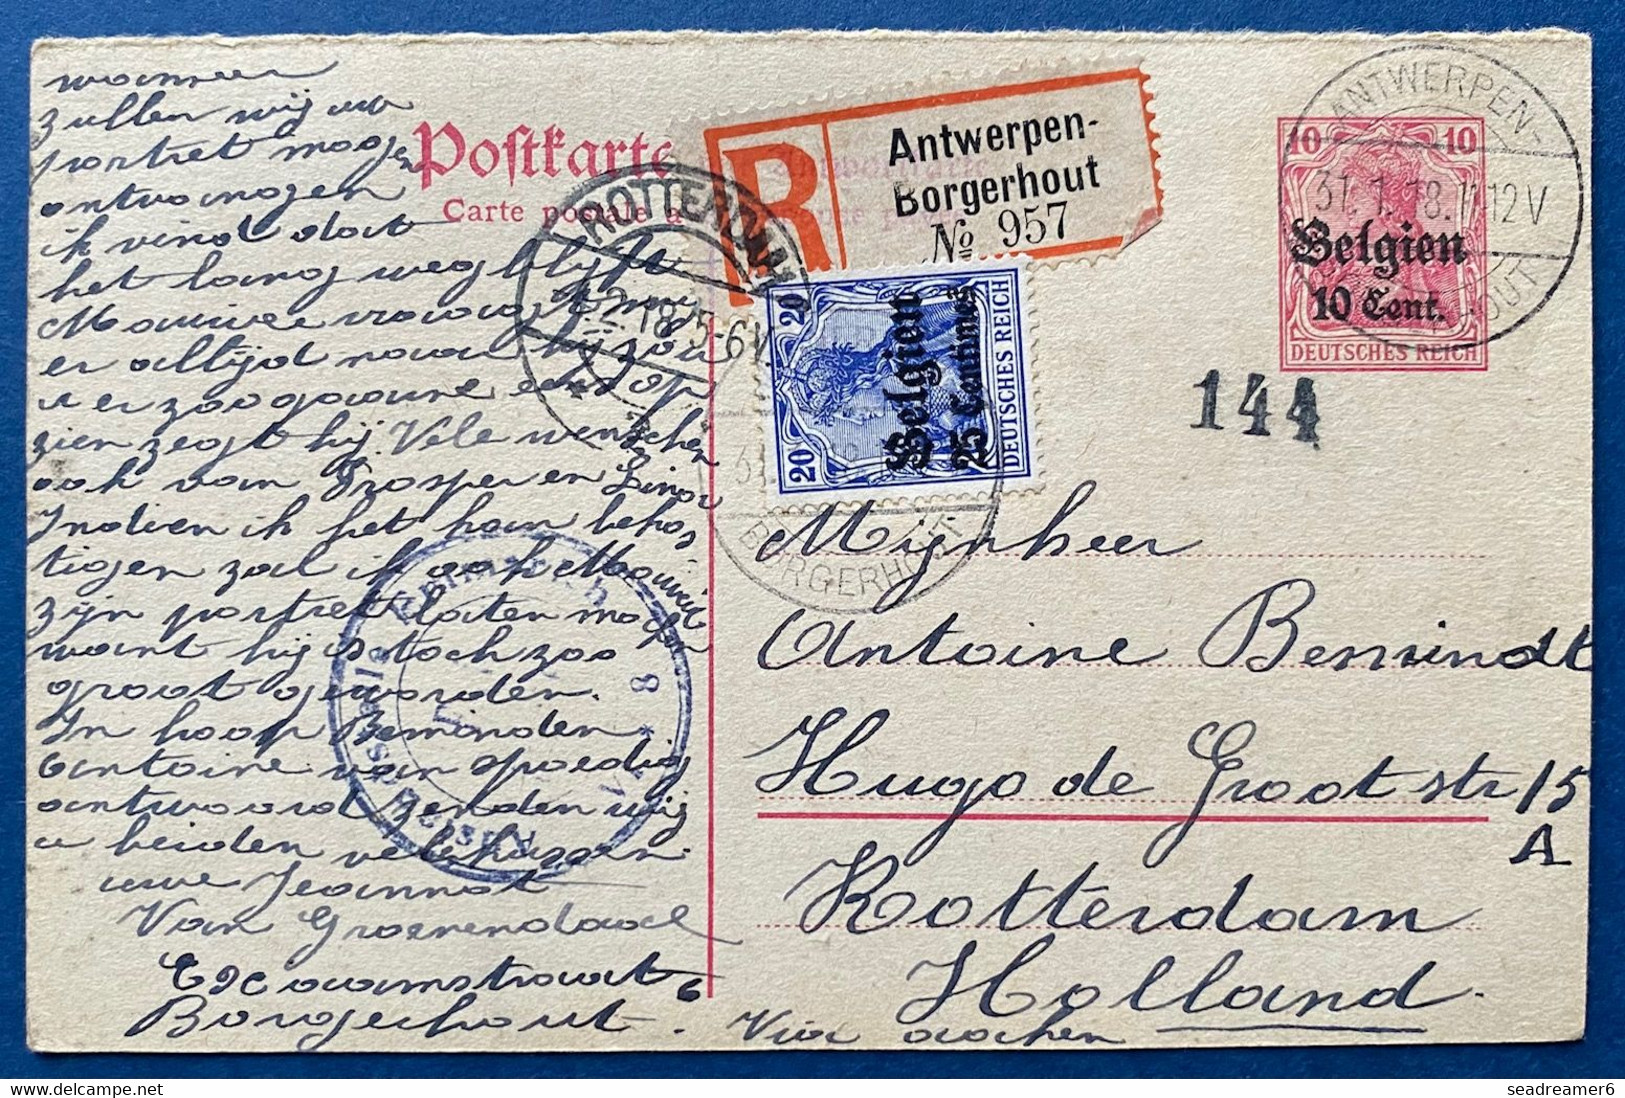 wanneer
zullen wij uw
portret mogen
ontvangen
ik vind dat
het lang weg blijft
er altijd naar hij zou
u er zoo gaarne eens op
zien zegt hij. Vele wenschen
ook van Prosper en
Indien ik het kan bekos
tigen zal ik ook Maurice
zijn portret laten maken
want hij is toch zoo
groot geworden.
In hoop Beminden
Antoine van spoedig
antwoord zenden wij
u beiden vele kussen.
uwe Jeannot
Van Groenendael
straat 6
Borgerhout.
Postkarte
Carte postale a
R
Antwerpen-
Borgerhout
№ 957
ROTTERDAM
2.2.18 5-6V
20 20
Belgien
25 Centimes
DEUTSCHES REICH
BORGERHOUT
ANTWERPEN-
31.1.18.11-12V
10 10
Belgien
10 Cent.
DEUTSCHES REICH
144
Mijnheer
Antoine
Hugo de Grootstr 15
A
Rotterdam
Holland.
Via Aachen
8
seadreamer6
www.delcampe.net